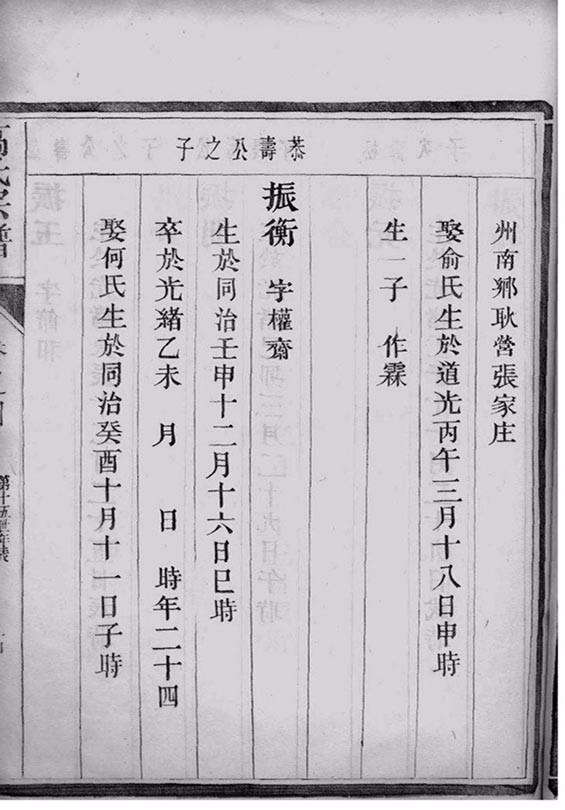 州南鄉耿營張家庄
娶俞氏生於道光丙午三月十八日申時
生一子 作霖
恭壽公之子
振衡 字權齋
生於同治壬申十二月十六日巳時
卒於光緒乙未 月 日 時年二十四
娶何氏生於同治癸酉十月十一日子時
氏宗譜
第十五世年表